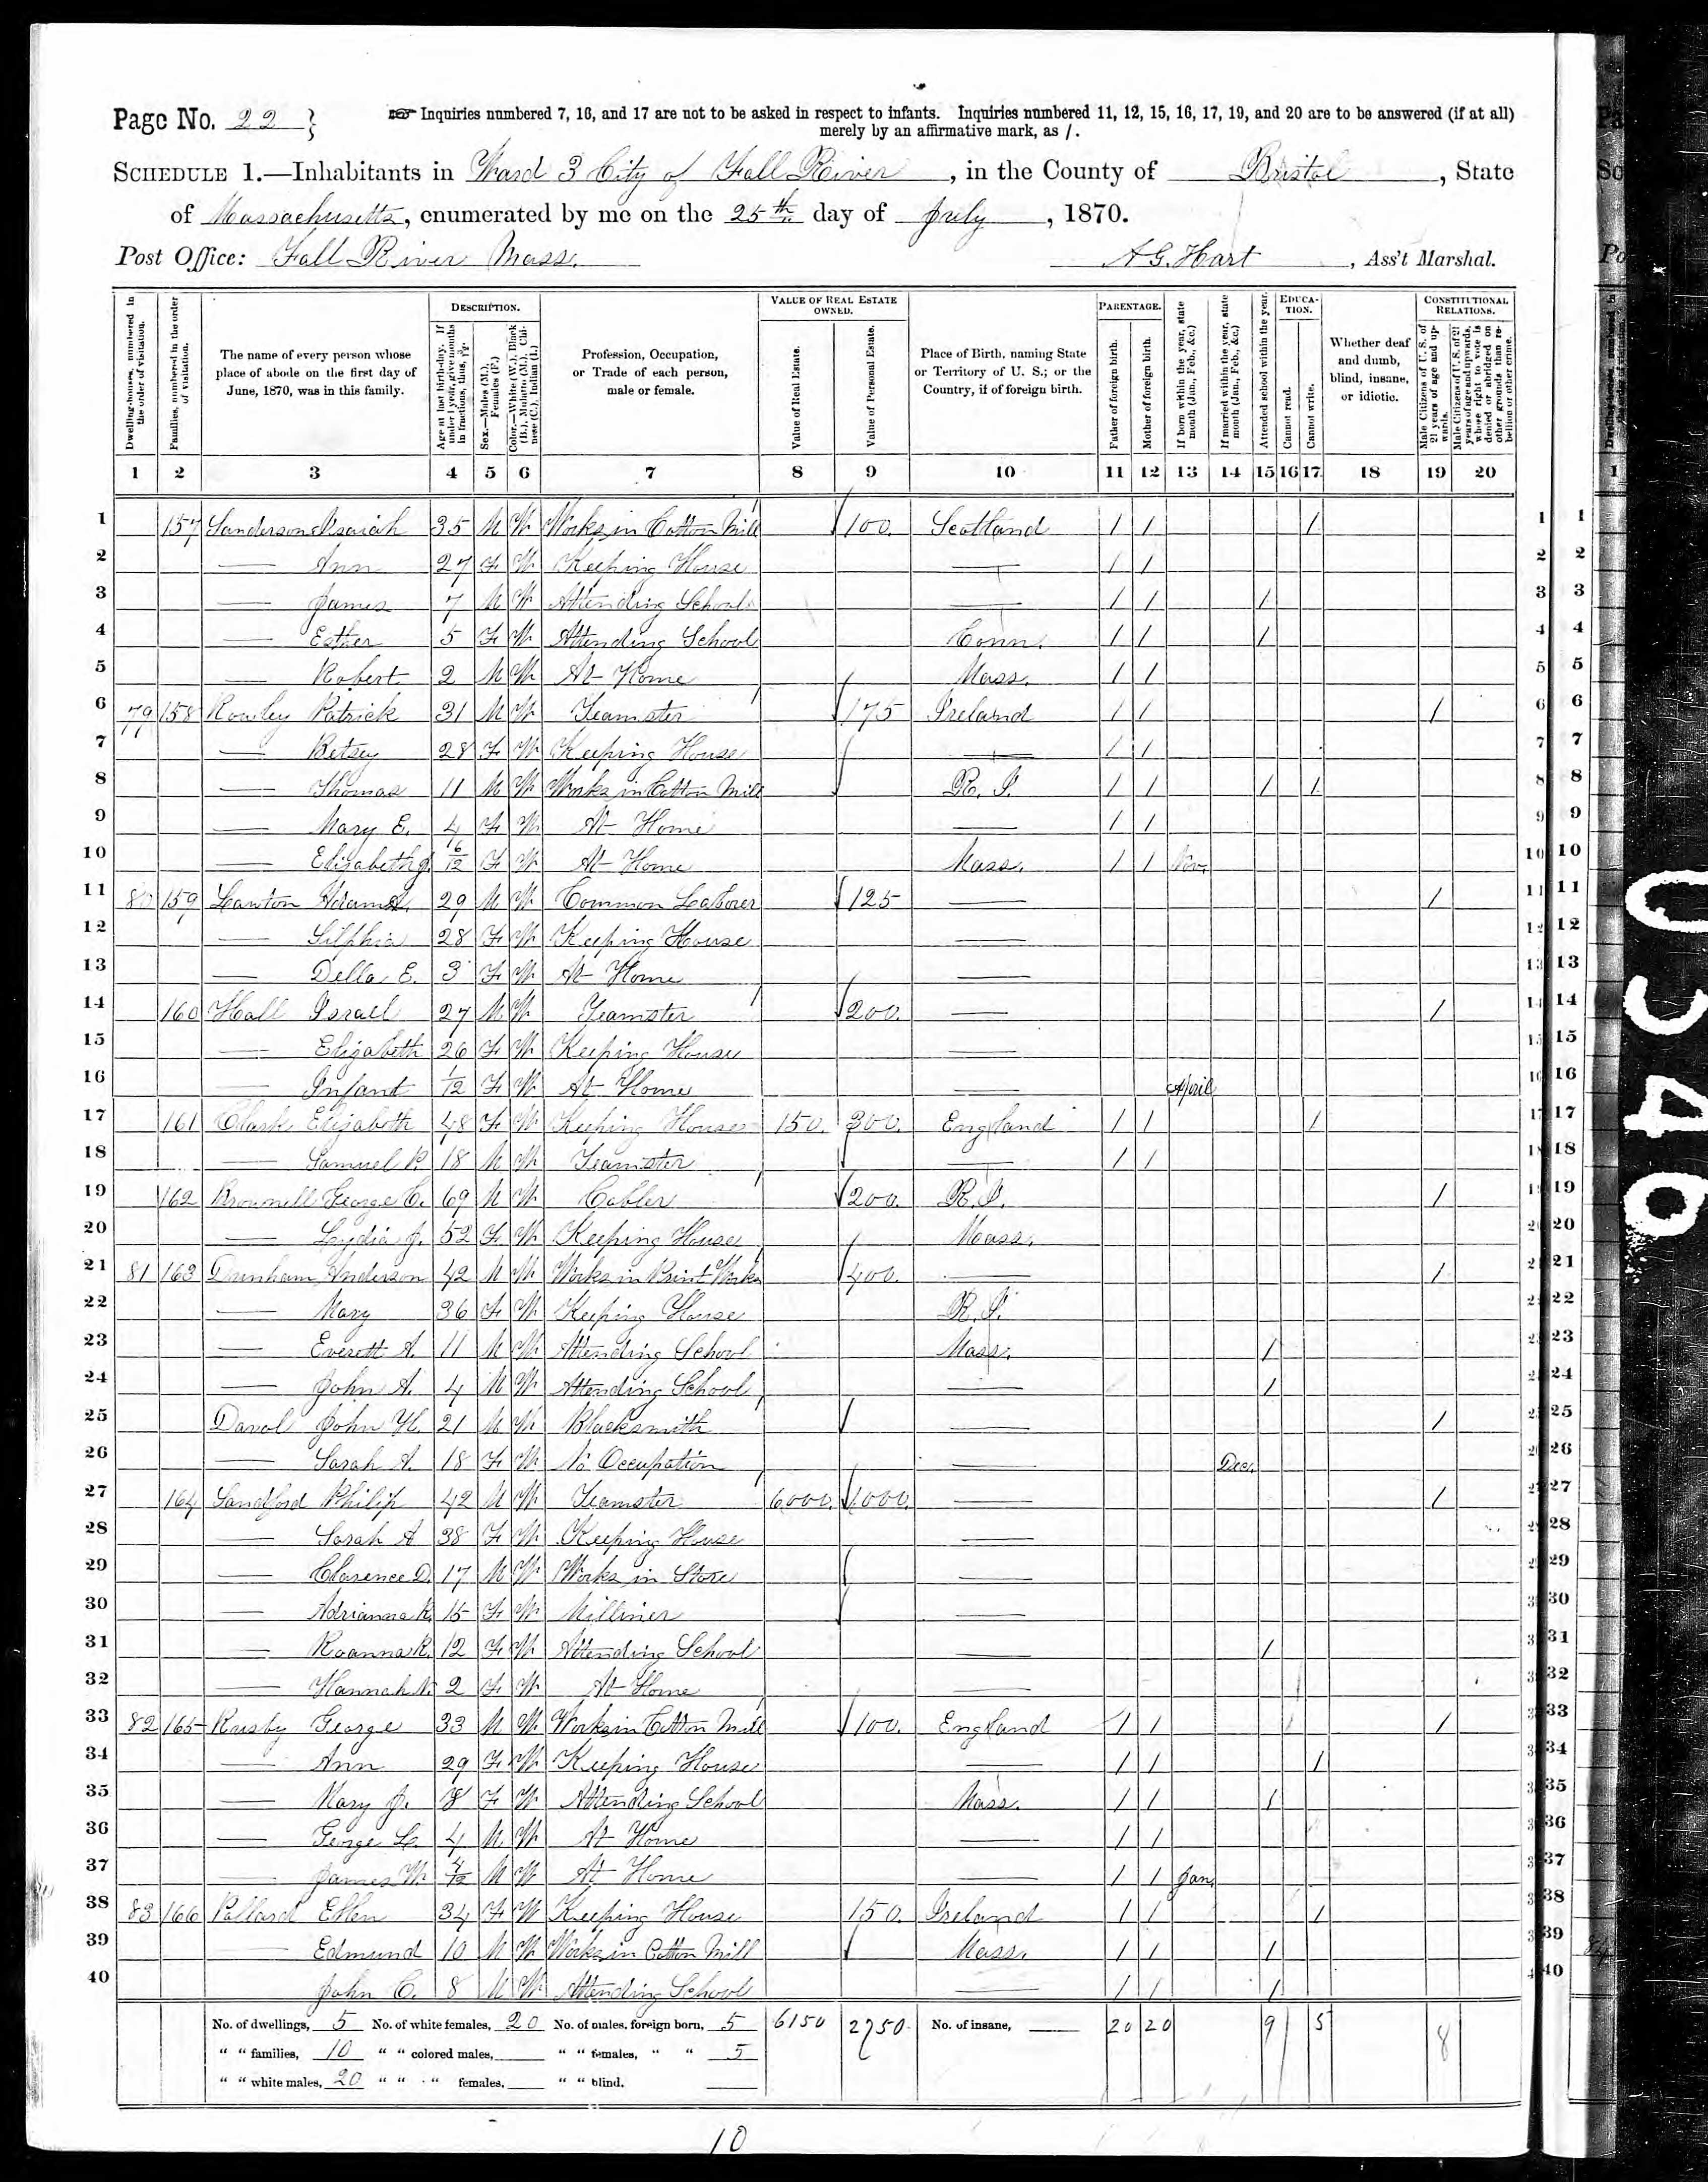 Page No. 22 }
☞ Inquiries numbered 7, 16, and 17 are not to be asked in respect to infants. Inquiries numbered 11, 12, 15, 16, 17, 19, and 20 are to be answered (if at all)
merely by an affirmative mark, as /.
SCHEDULE 1.—Inhabitants in Ward 3 City of Fall River, in the County of Bristol, State
of Massachusetts, enumerated by me on the 25th day of July, 1870.
Post Office: Fall River Mass.
A G. Hart, Ass't Marshal.
Dwelling-houses, numbered in the order of visitation.
Families, numbered in the order of visitation.
The name of every person whose place of abode on the first day of June, 1870, was in this family.
DESCRIPTION.
Age at last birth-day. If under 1 year, give months in fractions, thus, 3/12.
Sex.—Males (M.), Females (F.)
Color.—White (W.), Black (B.), Mulatto (M.), Chinese (C.), Indian (I.)
Profession, Occupation, or Trade of each person, male or female.
VALUE OF REAL ESTATE OWNED.
Value of Real Estate.
Value of Personal Estate.
Place of Birth, naming State or Territory of U. S.; or the Country, if of foreign birth.
PARENTAGE.
Father of foreign birth.
Mother of foreign birth.
If born within the year, state month (Jan., Feb., &c.)
If married within the year, state month (Jan., Feb., &c.)
Attended school within the year.
EDUCATION.
Cannot read.
Cannot write.
Whether deaf and dumb, blind, insane, or idiotic.
CONSTITUTIONAL RELATIONS.
Male Citizens of U. S. of 21 years of age and upwards.
Male Citizens of U. S. of 21 years of age and upwards, whose right to vote is denied or abridged on other grounds than rebellion or other crime.
1 2 3 4 5 6 7 8 9 10 11 12 13 14 15 16 17 18 19 20
1 157 Sanderson Isaiah 35 M W Works in Cotton Mill 100. Scotland / / / 1
2 — Ann 27 F W Keeping House — / / 2
3 — James 7 M W Attending School — / / / 3
4 — Esther 5 F W Attending School Conn. / / / 4
5 — Robert 2 M W At Home Mass. / / 5
6 79 158 Rowley Patrick 31 M W Teamster 175 Ireland / / / 6
7 — Betsey 28 F W Keeping House — / / 7
8 — Thomas 11 M W Works in Cotton Mill R. I. / / / / 8
9 — Mary E. 4 F W At Home — / / 9
10 — Elizabeth J. 6/12 F W At Home Mass. / / Nov. 10
11 80 159 Lawton Hiram A. 29 M W Common Laborer 125 — / 11
12 — Silphia 28 F W Keeping House — 12
13 — Della E. 3 F W At Home — 13
14 160 Hall Israel 27 M W Teamster 200. — / 14
15 — Elizabeth 26 F W Keeping House — 15
16 — Infant 1/12 F W At Home — April 16
17 161 Clark Elizabeth 48 F W Keeping House 150. 300. England / / / 17
18 — Samuel P. 18 M W Teamster — / / 18
19 162 Brownell George C. 69 M W Cobler 200. R. I. / 19
20 — Lydia J. 52 F W Keeping House Mass. 20
21 81 163 Dunham Anderson 42 M W Works in Print Works 400. — / 21
22 — Mary 36 F W Keeping House R. I. 22
23 — Everett A. 11 M W Attending School Mass. / 23
24 — John A. 4 M W Attending School — / 24
25 Davol John H. 21 M W Blacksmith — / 25
26 — Sarah A. 18 F W No Occupation — Dec. 26
27 164 Sandford Philip 42 M W Teamster 6000. 1000. — / 27
28 — Sarah A 38 F W Keeping House — 28
29 — Clarence D. 17 M W Works in Store — 29
30 — Adrianna R. 15 F W Milliner — 30
31 — Roanna R. 12 F W Attending School — / 31
32 — Hannah N. 2 F W At Home — 32
33 82 165 Rusby George 33 M W Works in Cotton Mill 100. England / / / 33
34 — Ann 29 F W Keeping House — / / / 34
35 — Mary J. 8 F W Attending School Mass. / / / 35
36 — George L. 4 M W At Home — / / 36
37 — James W. 4/12 M W At Home — / / Jan. 37
38 83 166 Pollard Ellen 34 F W Keeping House 150. Ireland / / / 38
39 Edmund 10 M W Works in Cotton Mill Mass. / / / 39
40 John C. 8 M W Attending School — / / / 40
No. of dwellings, 5 No. of white females, 20 No. of males, foreign born, 5 6150 2750 No. of insane, 20 20 9 5 8
" " families, 10 " " colored males, " " females, " " 5
" " white males, 20 " " " females, " " blind,
10
0340